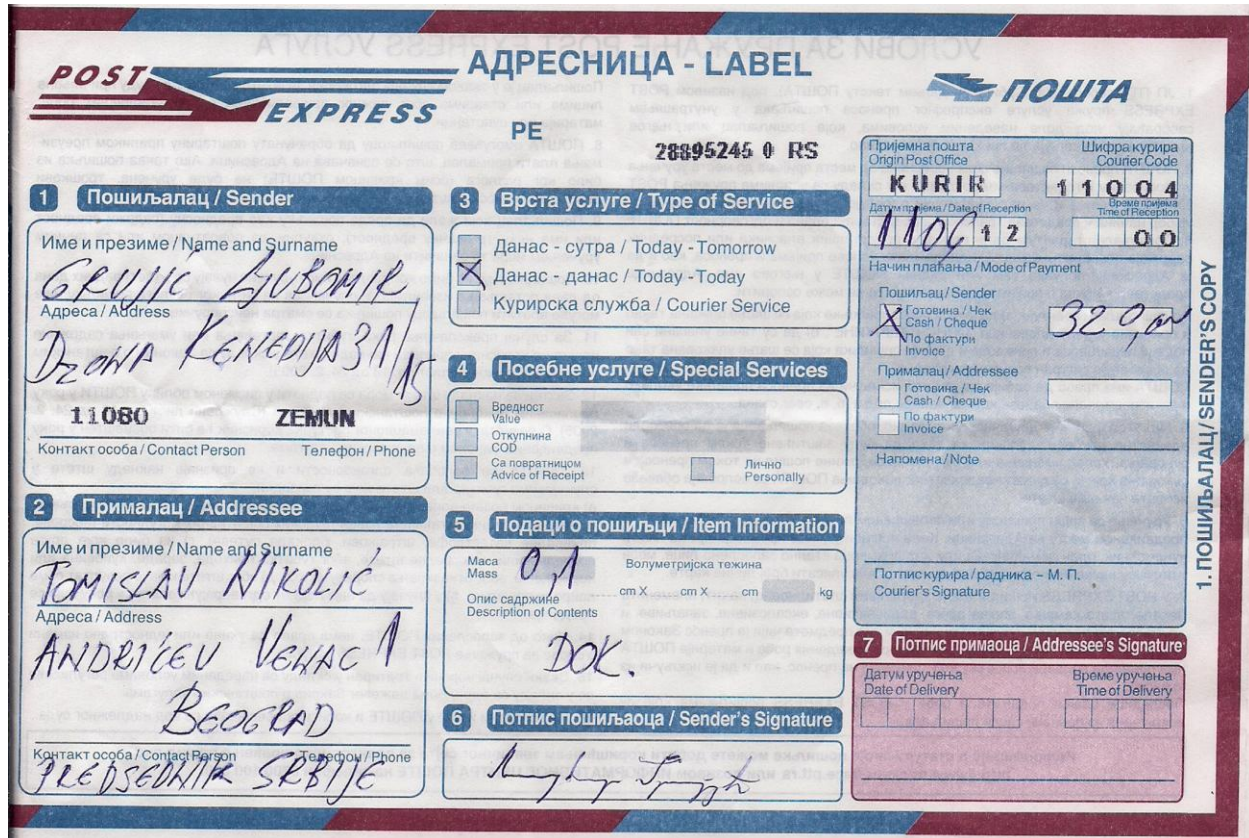 POST
EXPRESS
АДРЕСНИЦА - LABEL
ПОШТА
PE
28895245 0 RS
1 Пошиљалац / Sender
Име и презиме / Name and Surname
GRUJIĆ LJUBOMIR
Адреса / Address
DZONA KENEDIJA 31/15
11080 ZEMUN
Контакт особа / Contact Person Телефон / Phone
2 Прималац / Addressee
Име и презиме / Name and Surname
TOMISLAV NIKOLIĆ
Адреса / Address
ANDRIĆEV VENAC 1
BEOGRAD
Контакт особа / Contact Person Телефон / Phone
PREDSEDNIK SRBIJE
3 Врста услуге / Type of Service
Данас - сутра / Today - Tomorrow
X Данас - данас / Today - Today
Курирска служба / Courier Service
4 Посебне услуге / Special Services
Вредност
Value
Откупнина
COD
Са повратницом
Advice of Receipt
Лично
Personally
5 Подаци о пошиљци / Item Information
Маса
Mass
0,1
Волуметријска тежина
cm X cm X cm kg
Опис садржине
Description of Contents
DOK.
6 Потпис пошиљаоца / Sender's Signature
Пријемна пошта
Origin Post Office
Шифра курира
Courier Code
KURIR 11004
Датум пријема / Date of Reception
Време пријема
Time of Reception
12 00
Начин плаћања / Mode of Payment
Пошиљац / Sender
X Готовина / Чек
Cash / Cheque
320
По фактури
Invoice
Прималац / Addressee
Готовина / Чек
Cash / Cheque
По фактури
Invoice
Напомена / Note
Потпис курира / радника - М. П.
Courier's Signature
7 Потпис примаоца / Addressee's Signature
Датум уручења
Date of Delivery
Време уручења
Time of Delivery
1. ПОШИЉАЛАЦ / SENDER'S COPY